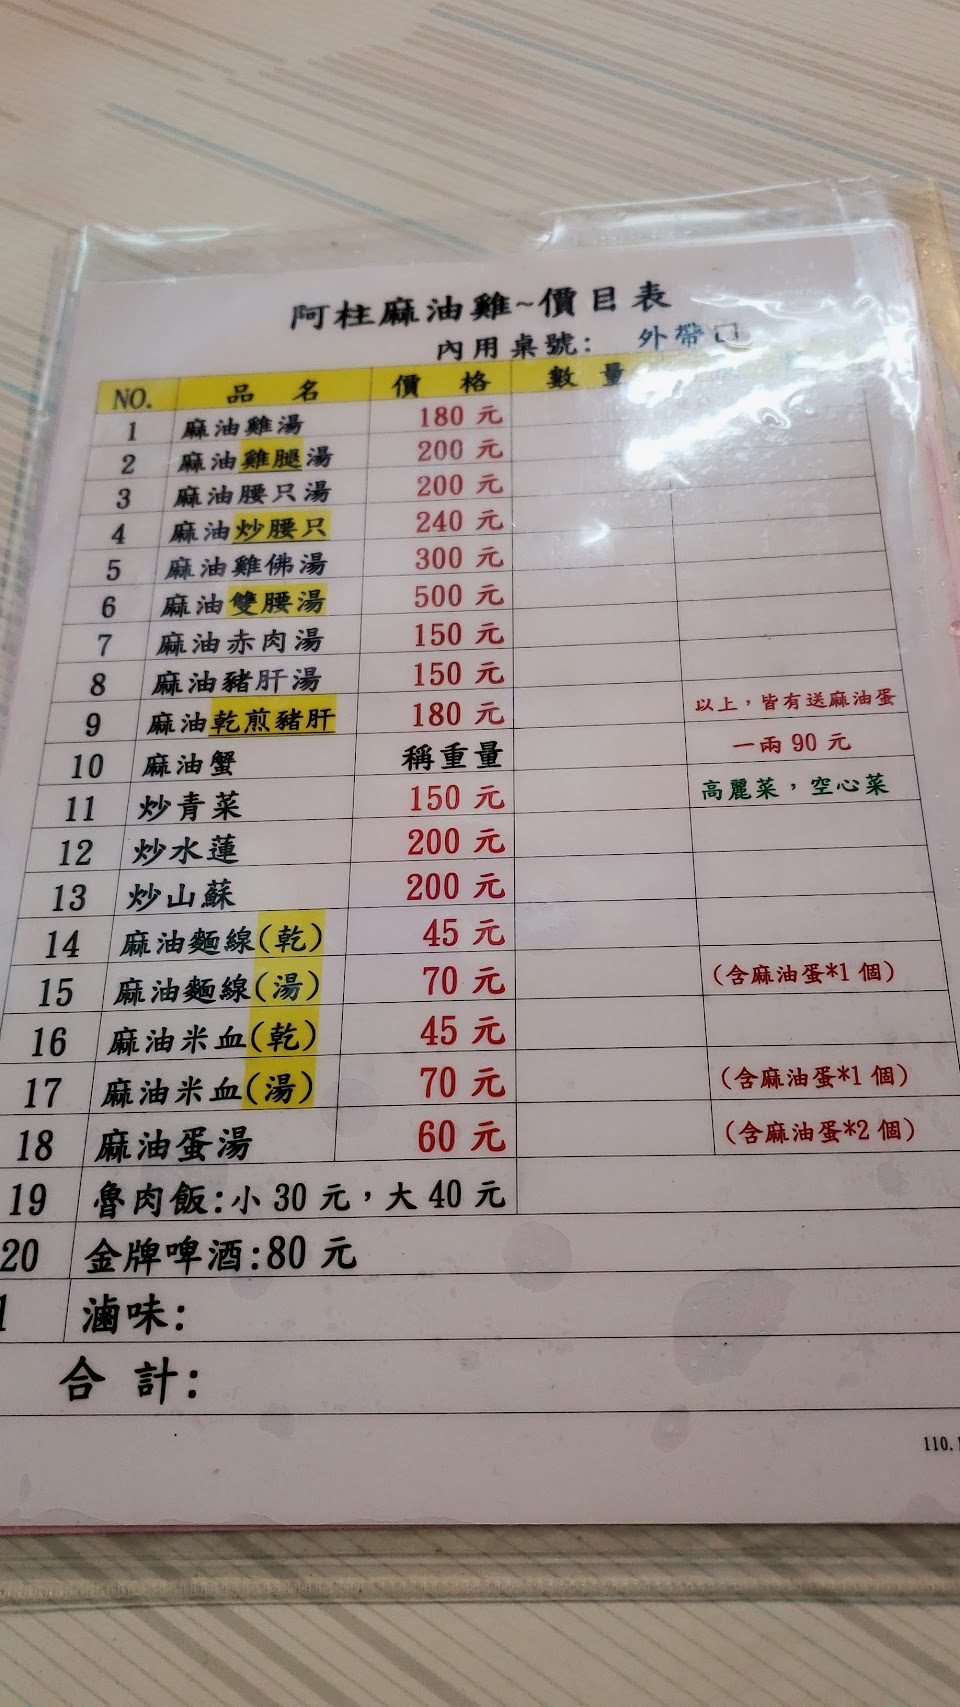 阿柱麻油雞~價目表
內用桌號: 外帶口
NO. 品名 價格 數量
1 麻油雞湯 180元
2 麻油雞腿湯 200元
3 麻油腰只湯 200元
4 麻油炒腰只 240元
5 麻油雞佛湯 300元
6 麻油雙腰湯 500元
7 麻油赤肉湯 150元
8 麻油豬肝湯 150元
9 麻油乾煎豬肝 180元 以上，皆有送麻油蛋
10 麻油蟹 稱重量 一兩90元
11 炒青菜 150元 高麗菜，空心菜
12 炒水蓮 200元
13 炒山蘇 200元
14 麻油麵線(乾) 45元
15 麻油麵線(湯) 70元 (含麻油蛋*1個)
16 麻油米血(乾) 45元
17 麻油米血(湯) 70元 (含麻油蛋*1個)
18 麻油蛋湯 60元 (含麻油蛋*2個)
19 魯肉飯:小30元，大40元
20 金牌啤酒:80元
1 滷味:
合計:
110.